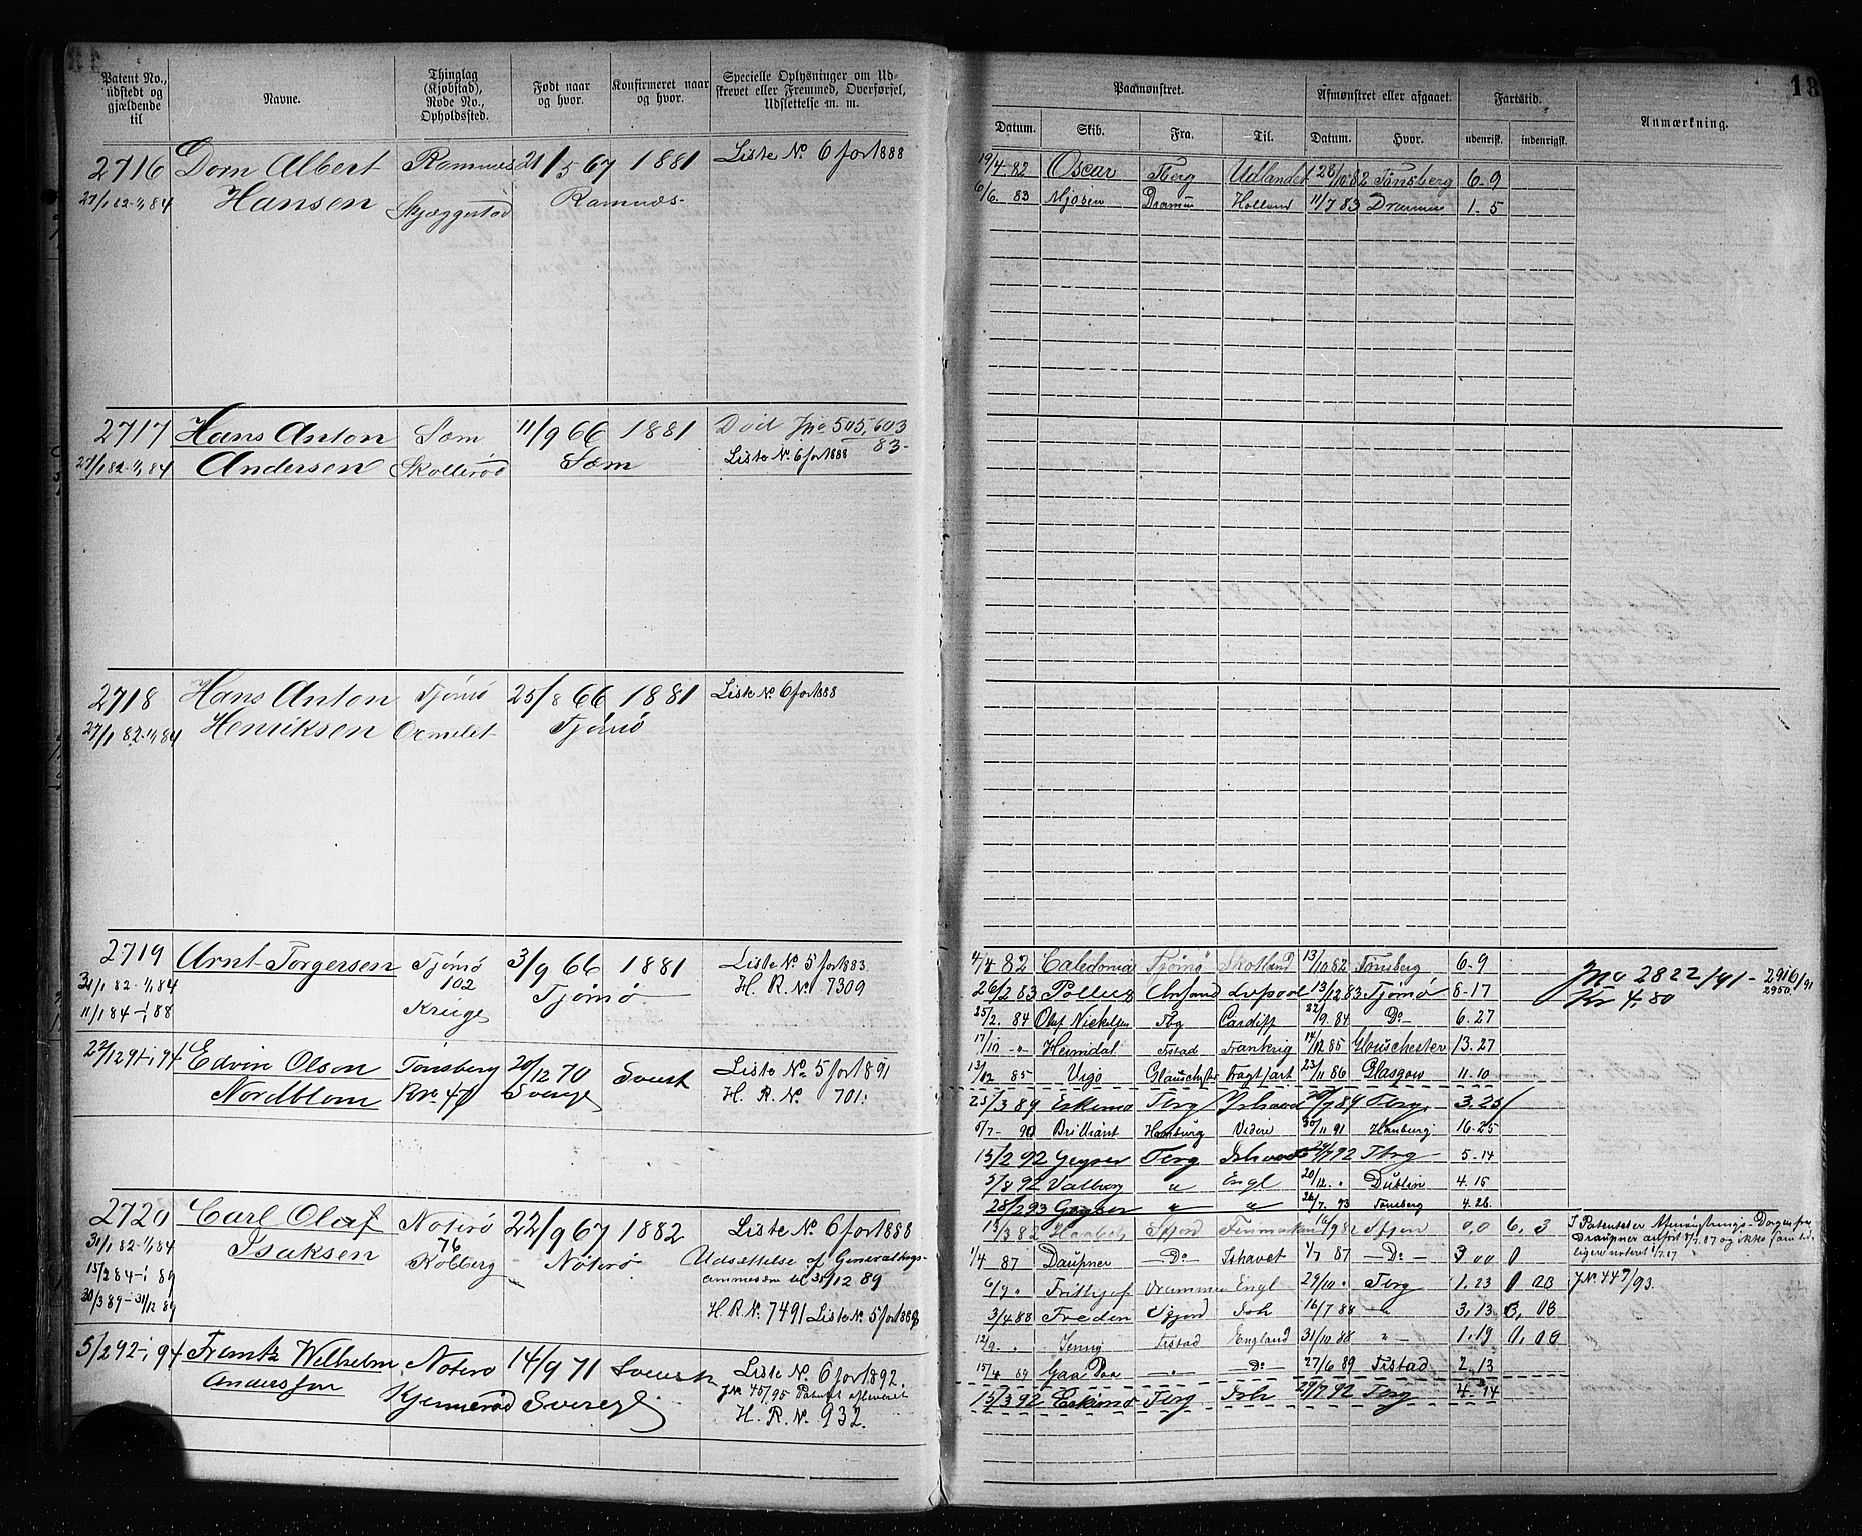 Patent No., udstedt og gjældende til
Navne.
Thinglag (Kjøbstad), Rode No., Opholdssted.
Født naar og hvor.
Konfirmeret naar og hvor.
Specielle Oplysninger om Udskrevet eller Fremmed, Overførsel, Udslettelse m. m.
2716 Dorn Albert Ramnes 21/5 67 1881 Liste No 6 for 1888
27/1 82-1/1 84 Hansen Skjæggestad Ramnæs
2717 Hans Anton Sem 11/9 66 1881 Død Jno 505, 603
27/1 82-1/1 84 Andersen Skollerød Sem Liste No 6 for 1888 83-
2718 Hans Anton Tjømø 25/8 66 1881 Liste No 6 for 1888
27/1 82-1/1 84 Henriksen Ormelet Tjømø
2719 Arnt Torgersen Tjømø 3/9 66 1881 Liste No 5 for 1883.
31/1 82-1/1 84 102 Tjømø H. R. No 7309
11/1 84-1/1 88 Kruge
22/12 91-1/1 94 Edvin Olson Tønsberg 20/12 70 Svensk Liste No 5 for 1891
Nordblom Rno 47 Sverige H. R. No 701.
2720 Carl Olaf Noterø 22/9 67 1882 Liste No 6 for 1888
31/1 82-1/1 84 Isaksen 76 Nøterø Udsættelse af Generalkrigs-
15/2 84-1/1 89 Kolberg til 31/12 89
30/3 89-31/12 89 H.R.No 7491 Liste No 5 for 1889
5/2 92-1/1 94 Frentz Wilhelm Noterø 14/9 71 Svensk Liste No 6 for 1892.
Andersson Sverige JNo 45/95 Patent afleveret
H. R. No 932.
18
Paamønstret.
Afmønstret eller afgaaet.
Fartstid.
Anmærkning.
Datum. Skib. Fra. Til. Datum. Hvor. udenrigsk. indenrigsk.
19/4 82 Oscar Tberg Udlandet 28/10 82 Tønsberg 6. 9
6/6. 83 Mjøsen Dramm Holland 11/7 83 Drammen 1. 5
4/4 82 Caledonia Tjømø Skotland 13/10 82 Tønsberg 6. 9
26/2 83 Pollux Chrsand Lvpool 13/12 83 Tjømø 8. 17 Jno 2822/91 - 2916/91 2950
25/2. 84 Olaf Nickelsen Tbg Cardiff 22/9. 84 Do 6. 27 Kr 4.80
17/10 -"- Heimdal Fstad Frankrig 14/12 85 Glouschester 13. 27
13/12 85 Vigo Glauschster Fragtfart 23/11 86 Glasgow 11. 10
25/3 89 Eskimo Tbrg Ishavet 20/7 89 Tbrg. 3. 25
5/7 - 90 Brilliant Hamburg Videre 30/11 91 Hamburg 16. 25
15/2 92 Geyser Tbrg Ishavet 24/7 92 Tbrg 5. 14
5/8 92 Valborg " Engl 20/12. " Dublin 4. 15
28/2 93 Geyser " " 26/7. 93 Tønsberg 4. 28
13/3 82 Haabet Sfjord Finmarken 16/9 82 Sfjor 0,0 6, 3
1/4 87 Daupner -Do- Ishavet 1/7 87 -Do- 3 00 0
6/9 " Frithjof Drammen Engl 29/10 " Tbrg 1. 23 0 0B JNo 447/93.
3/4 88 Freden Sfjord Ish 16/7 88 -"- 3, 13 0, 0B
12/9. " Jenny Fstad England 31/10 88 "- 1. 19 0, 0B
15/4 89 Gaa Paa -"- Do 27/6 89 Fistad 2. 13
15/3 92 Eskimo Tbrg Ish 29/7 92 Tbrg 4. 14